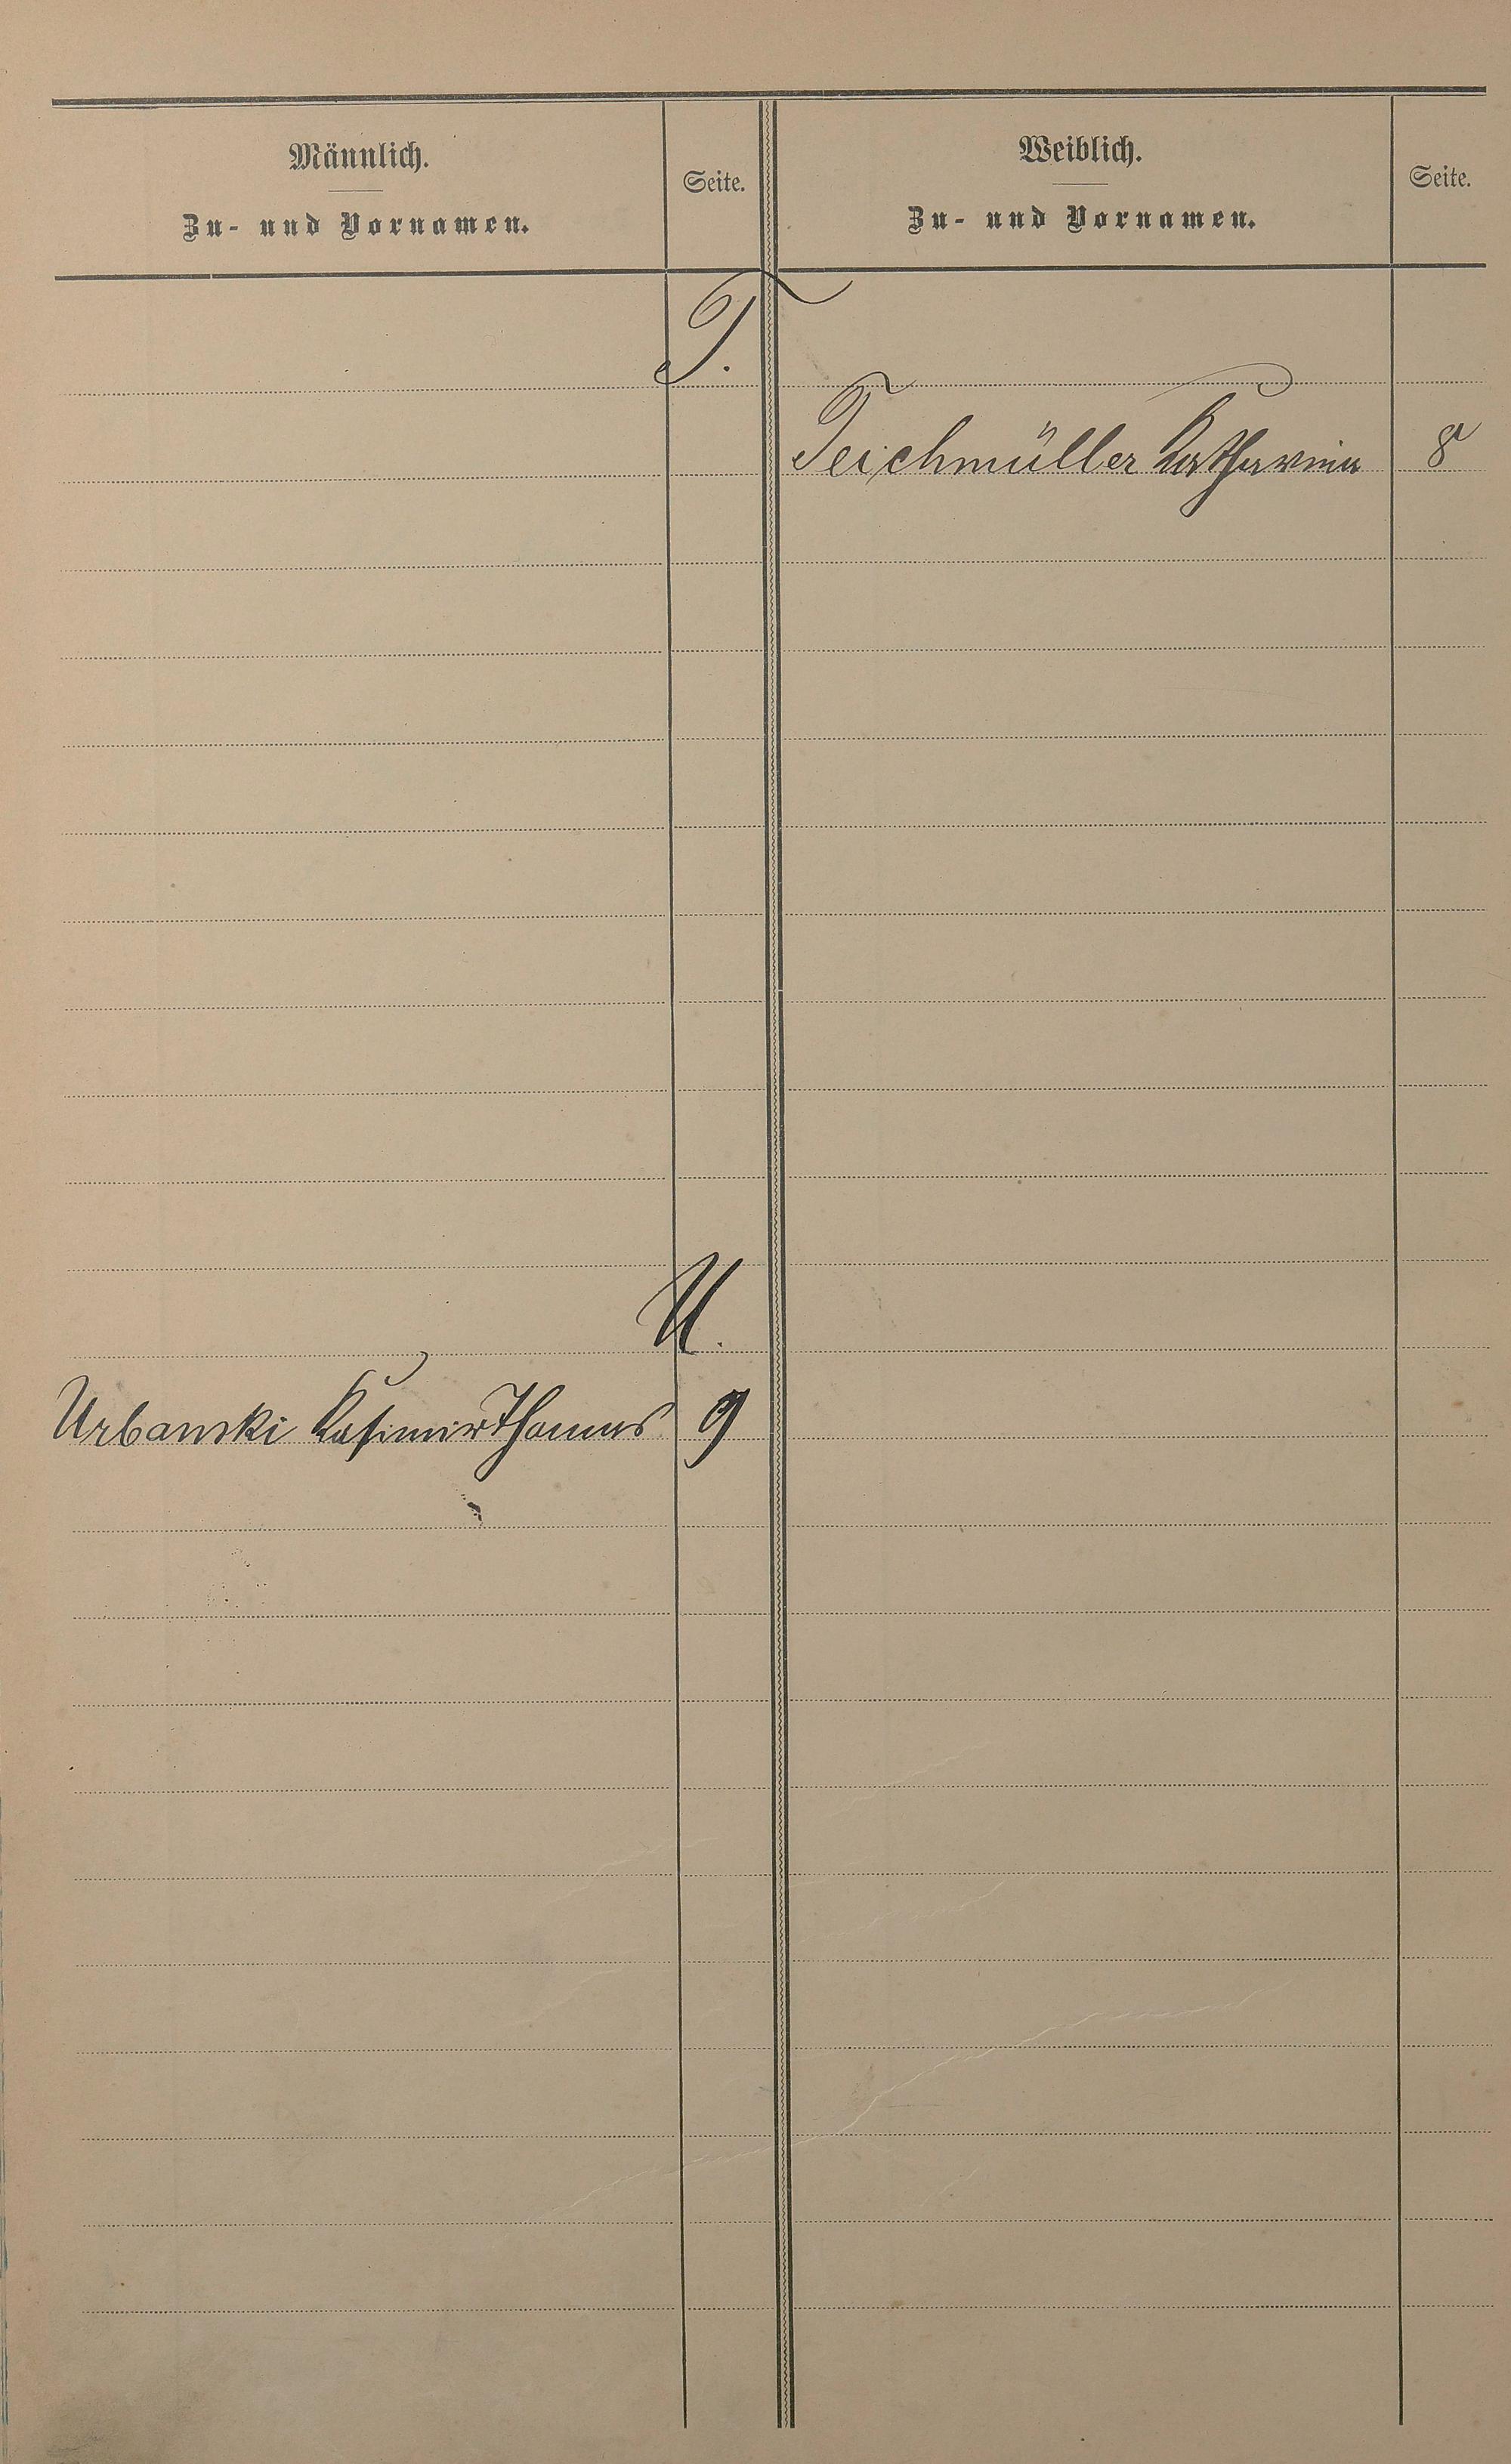 Männlich.
Zu- und Vornamen.
Seite.
Weiblich.
Zu- und Vornamen.
Seite.
T.
Teichmüller Katharina 8
U.
Urbanski Kasimir Thomas 9